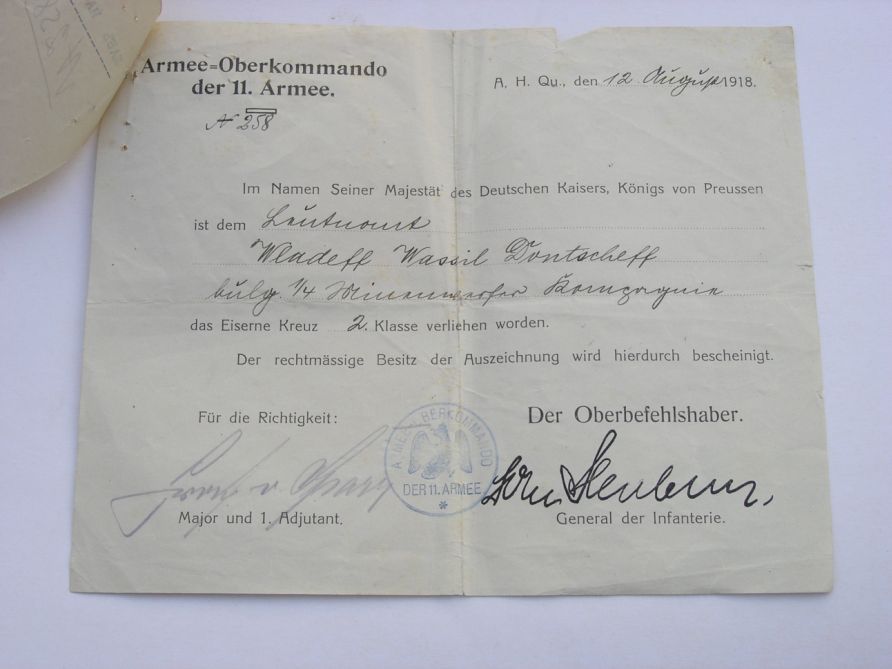 Armee=Oberkommando
der 11. Armee.
A. H. Qu., den 12 August 1918.
№ 258
Im Namen Seiner Majestät des Deutschen Kaisers, Königs von Preussen
ist dem Leutnant
Wladeff Wassil Dontscheff
bulg. 1/4 Minenwerfer Kompagnie
das Eiserne Kreuz 2. Klasse verliehen worden.
Der rechtmässige Besitz der Auszeichnung wird hierdurch bescheinigt.
Für die Richtigkeit:
Der Oberbefehlshaber.
ARMEE-OBERKOMMANDO
DER 11. ARMEE
Major und 1. Adjutant.
General der Infanterie.